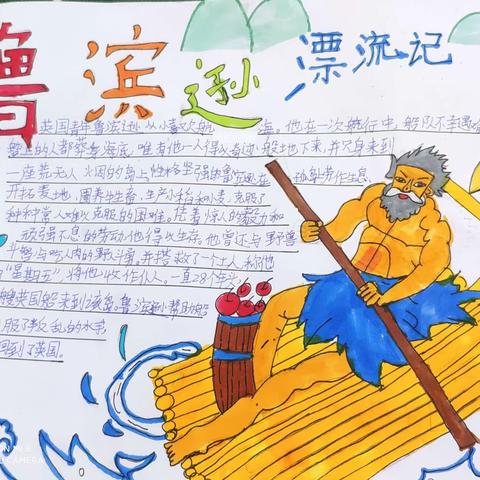 鲁滨逊漂流记
英国青年鲁滨逊从小喜欢航海。他在一次航行中,船队不幸遇
船上的人都葬身海底,唯有他一人得以奇迹般地活下来,并只身来到
一座荒无人烟的岛上性格坚强的鲁滨逊在孤岛劳作生息
开拓荒地,圈养牲畜,生产水稻和小麦,克服了
种种常人难以克服的困难,凭着惊人的毅力和
顽强不息的劳动他得以生存。他曾还与野兽
斗智与吃人肉的野人斗勇。并搭救了一个土人,称他
"星期五",将他收作仆人。一直28个年头
一艘英国船来到该岛,鲁滨逊帮助船
服了叛乱的水手
回到了英国。